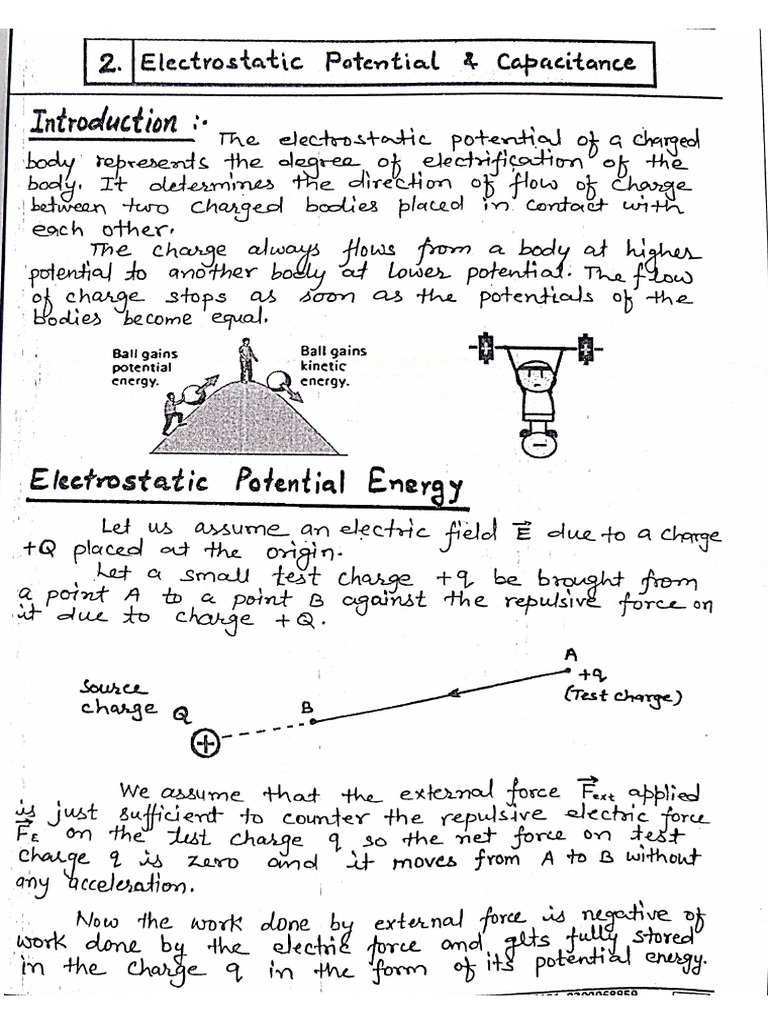 2. Electrostatic Potential & Capacitance
Introduction :-
The electrostatic potential of a charged
body represents the degree of electrification of the
body. It determines the direction of flow of charge
between two charged bodies placed in contact with
each other.
The charge always flows from a body at higher
potential to another body at lower potential. The flow
of charge stops as soon as the potentials of the
bodies become equal.
Ball gains
potential
energy.
Ball gains
kinetic
energy.
Electrostatic Potential Energy
Let us assume an electric field E⃗ due to a charge
+Q placed at the origin.
Let a small test charge +q be brought from
a point A to a point B against the repulsive force on
it due to charge +Q.
A
+q
(Test charge)
Source
charge Q
B
We assume that the external force F⃗ext applied
is just sufficient to counter the repulsive electric force
F⃗E on the test charge q so the net force on test
charge q is zero and it moves from A to B without
any acceleration.
Now the work done by external force is negative of
work done by the electric force and gets fully stored
in the charge q in the form of its potential energy.